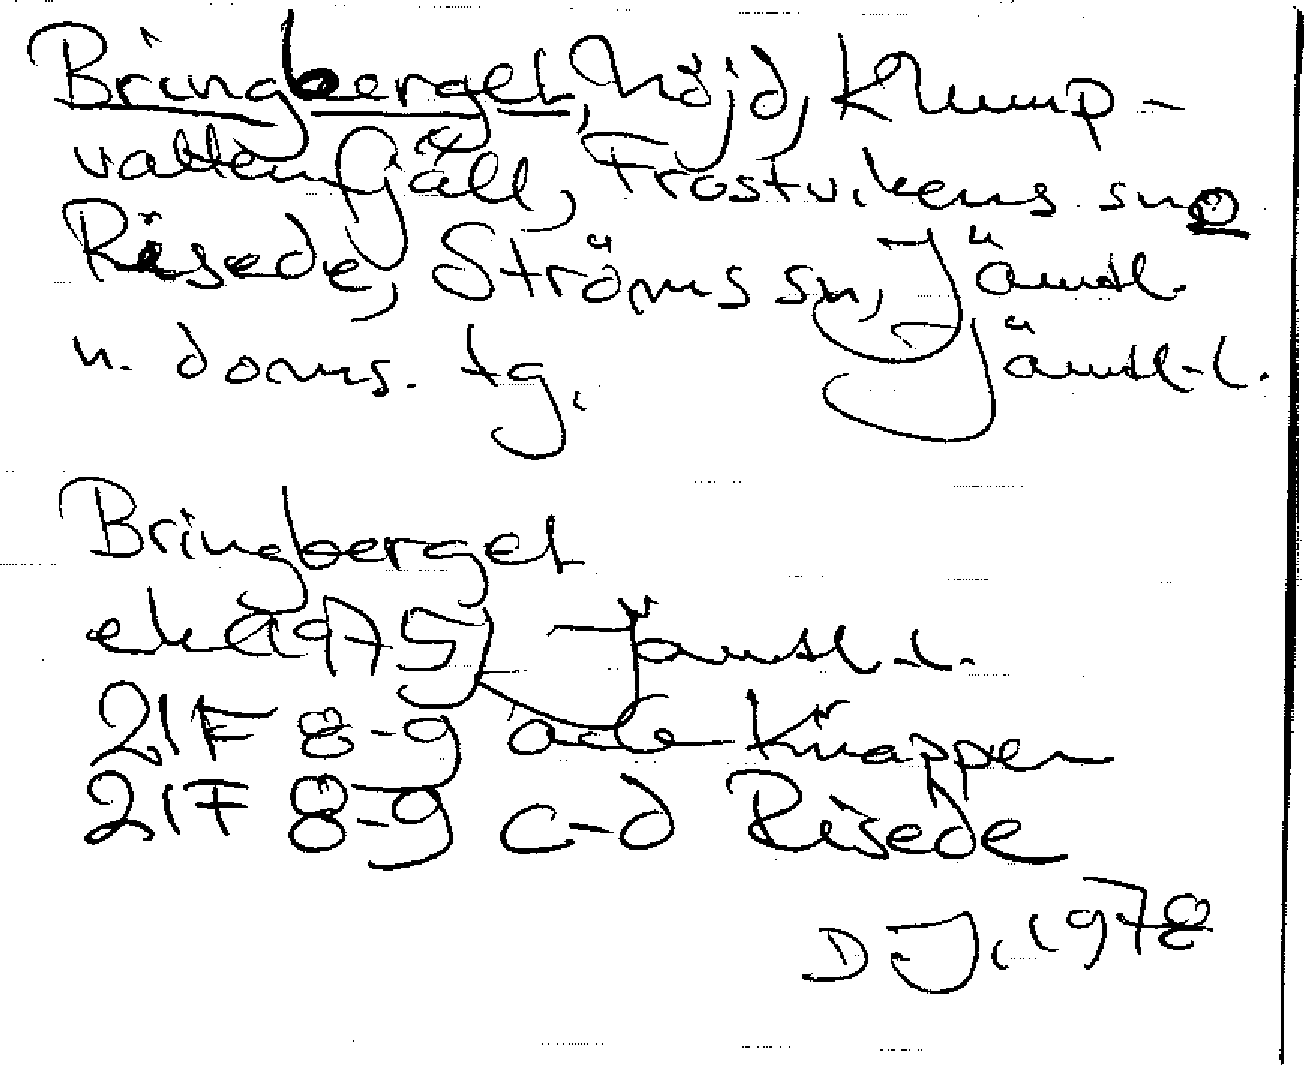 Bringberget, höjd, Klump-
vattenfjäll, Frostvikens sn o
Risede, Ströms sn, Jämtl.
n. doms. tg. Jämtl-l.
Bringberget
eka 1975, Jämtl-l.
21F 8-g Knappen
21F 8-g c-d Risede
D J, 1978